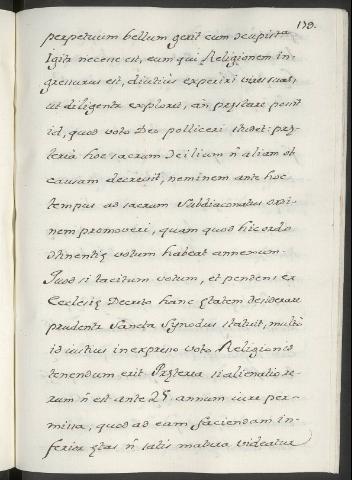 139.
perpetuum bellum gerit cum Deupista
Igitr necesse est, eum qui Religionem in-
gressurus est, diutius experiri vires suas,
ut diligentr exploret, an prestare possit
id, quod voto Deo polliceri studet: prę-
terea hoc sacrum Cilium ñ aliam ob
causam decrevit, neminem ante hoc
tempus ad sacrum Subdiaconatus ordi-
nem promoveri, quam quod hic ordo
Stinentię votum habeat annexum.
Quod si tacitum votum, et pendens ex
Ecclesię Decreto hanc ętatem desiderare
prudentr Sancta Synodus statuit, multò
id iustius in expresso voto Religionis
tenendum erit Pręterea si alienatio re-
rum ñ est ante 25 annum iure per-
missa, quod ad eam faciendam in-
ferior ętas ñ satis matura videatur